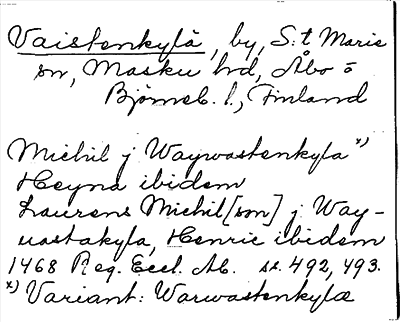 Vaistenkylä, by, S:t Marie
sn, Masku hd, Åbo o
Björneb. l., Finland
Michil j Waywastenkyla x)
Heyna ibidem
Laurens Michil[son] j Way-
wastakyla, Henric ibidem
1468 Reg. Eccl. Ab. s. 492, 493.
x) Variant: Warwastenkylæ